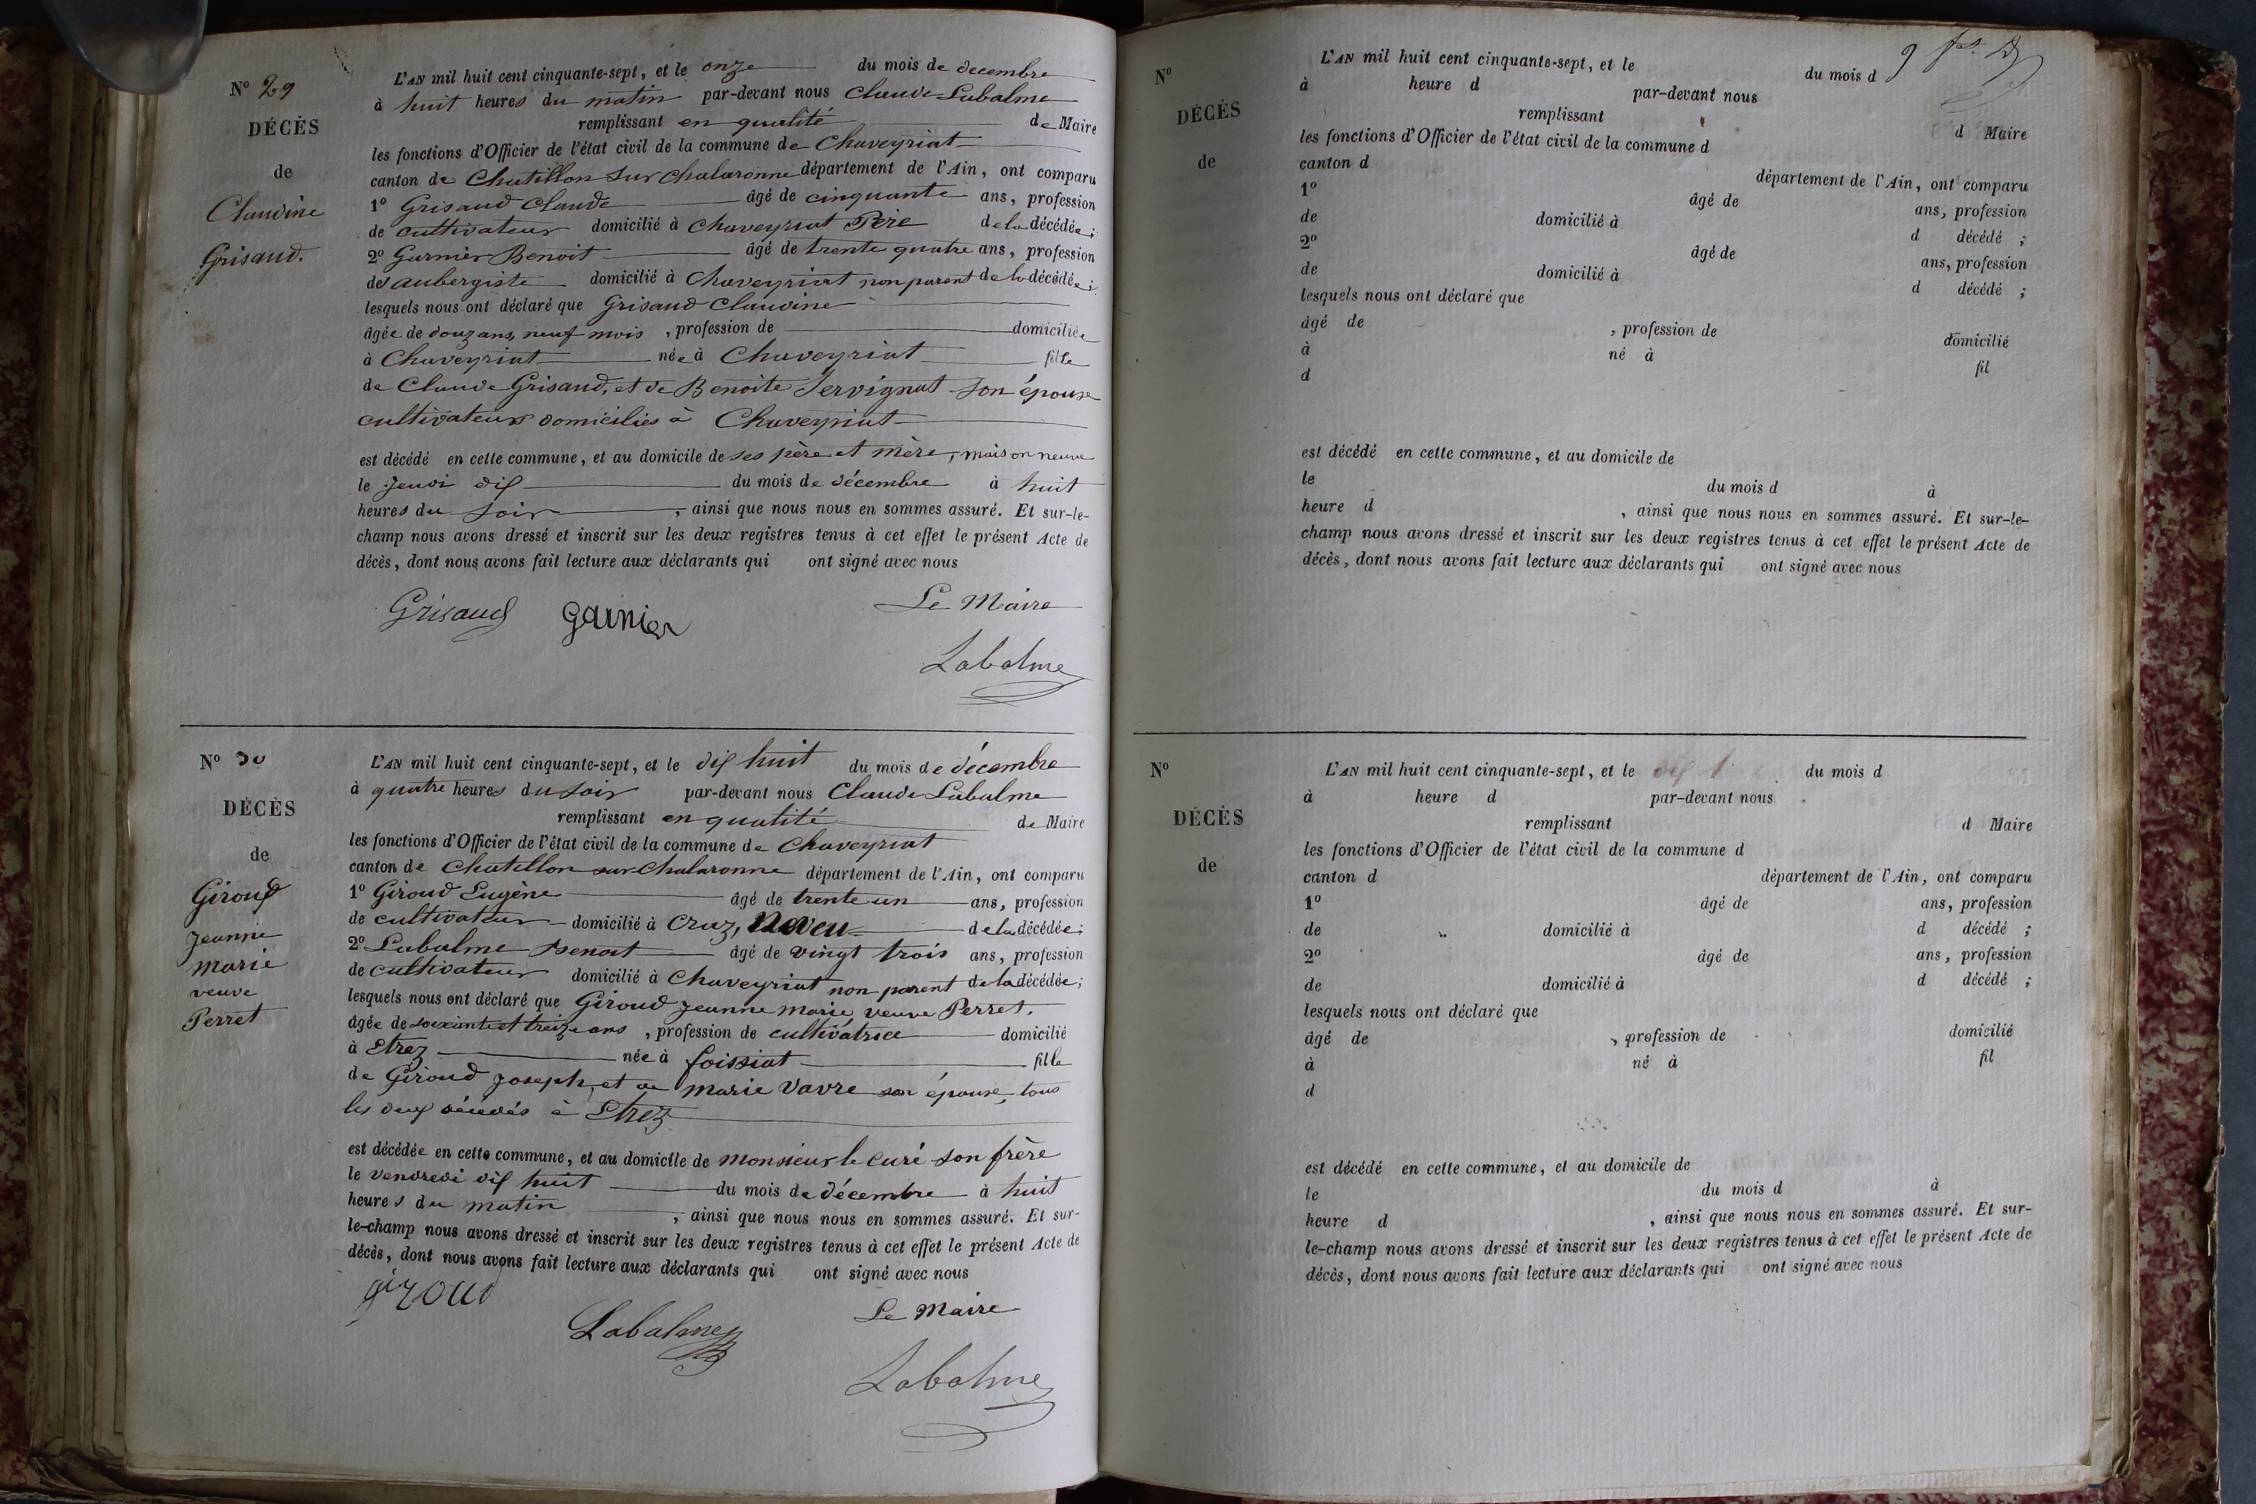 N° 29
DÉCÈS
de
Claudine
Grisaud.
L'AN mil huit cent cinquante-sept, et le onze du mois de decembre
à huit heures du matin par-devant nous Claude Labalme
remplissant en qualité de Maire
les fonctions d'Officier de l'état civil de la commune de Chaveyriat
canton de Chatillon sur Chalaronne département de l'Ain, ont comparu
1° Grisaud Claude âgé de cinquante ans, profession
de cultivateur domicilié à Chaveyriat Père de la décédée;
2° Garnier Benoit âgé de trente quatre ans, profession
des aubergiste domicilié à Chaveyriat non parent de la décédée;
lesquels nous ont déclaré que Grisaud Claudine
âgée de douz ans, neuf mois, profession de domiciliée
à Chaveyriat née à Chaveyriat fille
de Claude Grisaud, et de Benoite Servignat son épouse
cultivateurs domiciliés à Chaveyriat
est décédé en cette commune, et au domicile de ses père et mère, maison neuve
le Jeudi dix du mois de décembre à huit
heures du soir, ainsi que nous nous en sommes assuré. Et sur-le-
champ nous avons dressé et inscrit sur les deux registres tenus à cet effet le présent Acte de
décès, dont nous avons fait lecture aux déclarants qui ont signé avec nous
Grisaud Garnier Le Maire
Labalme
N° 30
DÉCÈS
de
Giroud
Jeanne
marie
veuve
Perret
L'AN mil huit cent cinquante-sept, et le dix huit du mois de décembre
à quatre heures du soir par-devant nous Claude Labalme
remplissant en qualité de Maire
les fonctions d'Officier de l'état civil de la commune de Chaveyriat
canton de Chatillon sur Chalaronne département de l'Ain, ont comparu
1° Giroud Eugène âgé de trente un ans, profession
de cultivateur domicilié à Cruz, Neveu de la décédée;
2° Labalme Benoit âgé de vingt trois ans, profession
de cultivateur domicilié à Chaveyriat non parent de la décédée;
lesquels nous ont déclaré que Giroud Jeanne Marie, veuve Perret.
âgée de soixante et treize ans, profession de cultivatrice domicilié
à Etrez née à foissiat fille
de Giroud Joseph, et de marie Vavre son épouse, tous
les deux décédés à Etrez
est décédée en cette commune, et au domicile de monsieur le curé son frère
le vendredi dix huit du mois de décembre à huit
heures du matin, ainsi que nous nous en sommes assuré. Et sur-
le-champ nous avons dressé et inscrit sur les deux registres tenus à cet effet le présent Acte de
décès, dont nous avons fait lecture aux déclarants qui ont signé avec nous
giroud Labalme Le Maire
Labalme
N°
DÉCÈS
de
L'AN mil huit cent cinquante-sept, et le du mois d
à heure d par-devant nous
remplissant d Maire
les fonctions d'Officier de l'état civil de la commune d
canton d département de l'Ain, ont comparu
1° âgé de ans, profession
de domicilié à d décédé ;
2° âgé de ans, profession
de domicilié à d décédé ;
lesquels nous ont déclaré que
âgé de , profession de domicilié
à né à fil
d
est décédé en cette commune, et au domicile de
le du mois d à
heure d , ainsi que nous nous en sommes assuré. Et sur-le-
champ nous avons dressé et inscrit sur les deux registres tenus à cet effet le présent Acte de
décès, dont nous avons fait lecture aux déclarants qui ont signé avec nous
N°
DÉCÈS
de
L'AN mil huit cent cinquante-sept, et le du mois d
à heure d par-devant nous
remplissant d Maire
les fonctions d'Officier de l'état civil de la commune d
canton d département de l'Ain, ont comparu
1° âgé de ans, profession
de domicilié à d décédé ;
2° âgé de ans, profession
de domicilié à d décédé ;
lesquels nous ont déclaré que
âgé de , profession de domicilié
à né à fil
d
est décédé en cette commune, et au domicile de
le du mois d à
heure d , ainsi que nous nous en sommes assuré. Et sur-
le-champ nous avons dressé et inscrit sur les deux registres tenus à cet effet le présent Acte de
décès, dont nous avons fait lecture aux déclarants qui ont signé avec nous